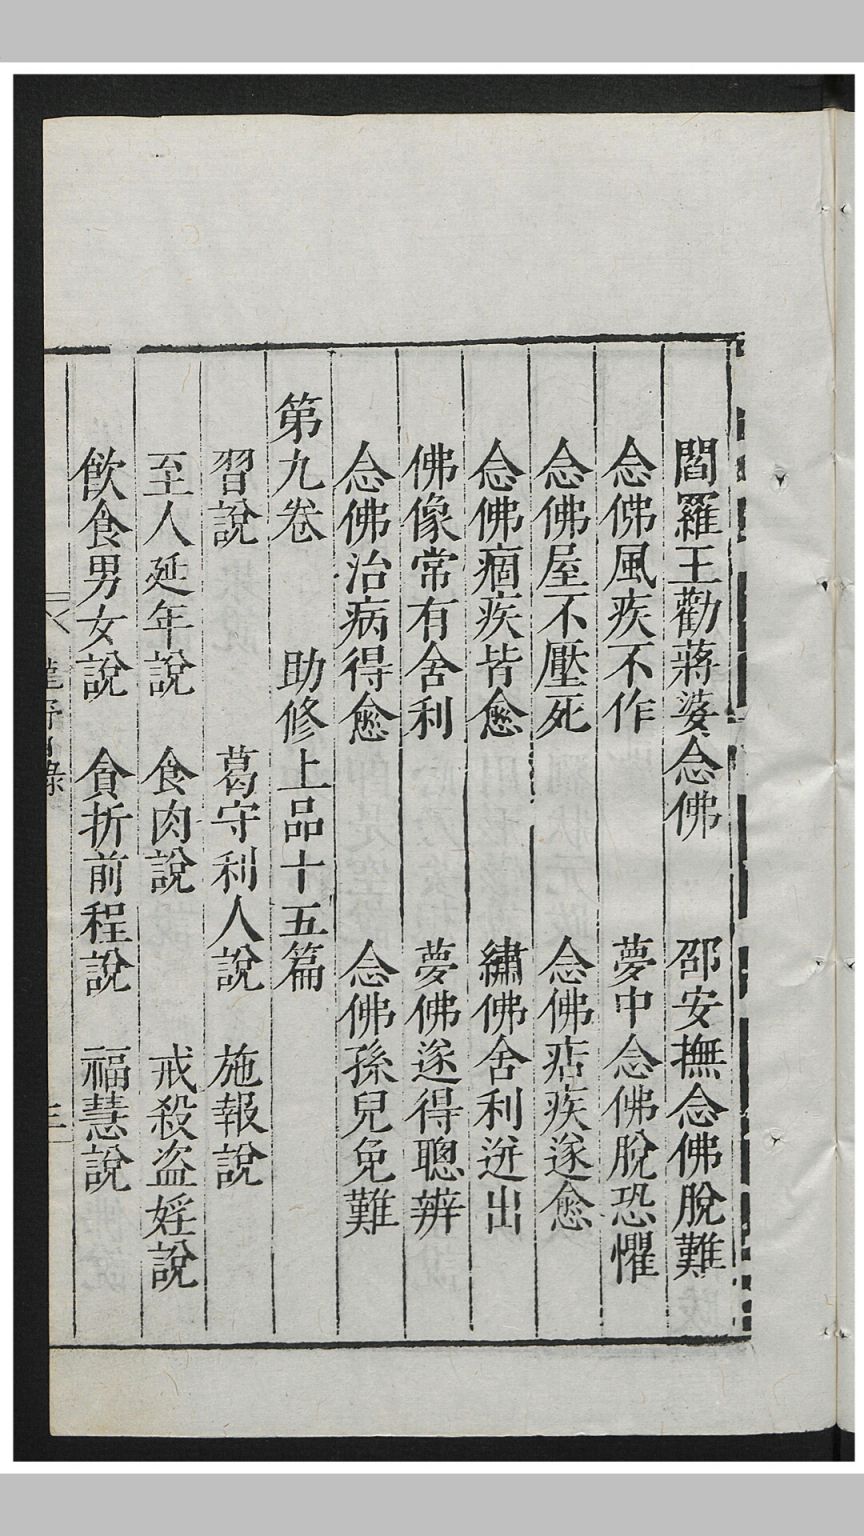 閻羅王勸蔣婆念佛　邵安撫念佛脫難
念佛風疾不作　夢中念佛脫恐懼
念佛屋不壓死　念佛痁疾遂愈
念佛痼疾皆愈　繡佛舍利迸出
佛像常有舍利　夢佛遂得聰辨
念佛治病得愈　念佛孫兒免難
第九卷　助修上品十五篇
習說　葛守利人說　施報說
至人延年說　食肉說　戒殺盜婬說
飲食男女說　貪折前程說　福慧說